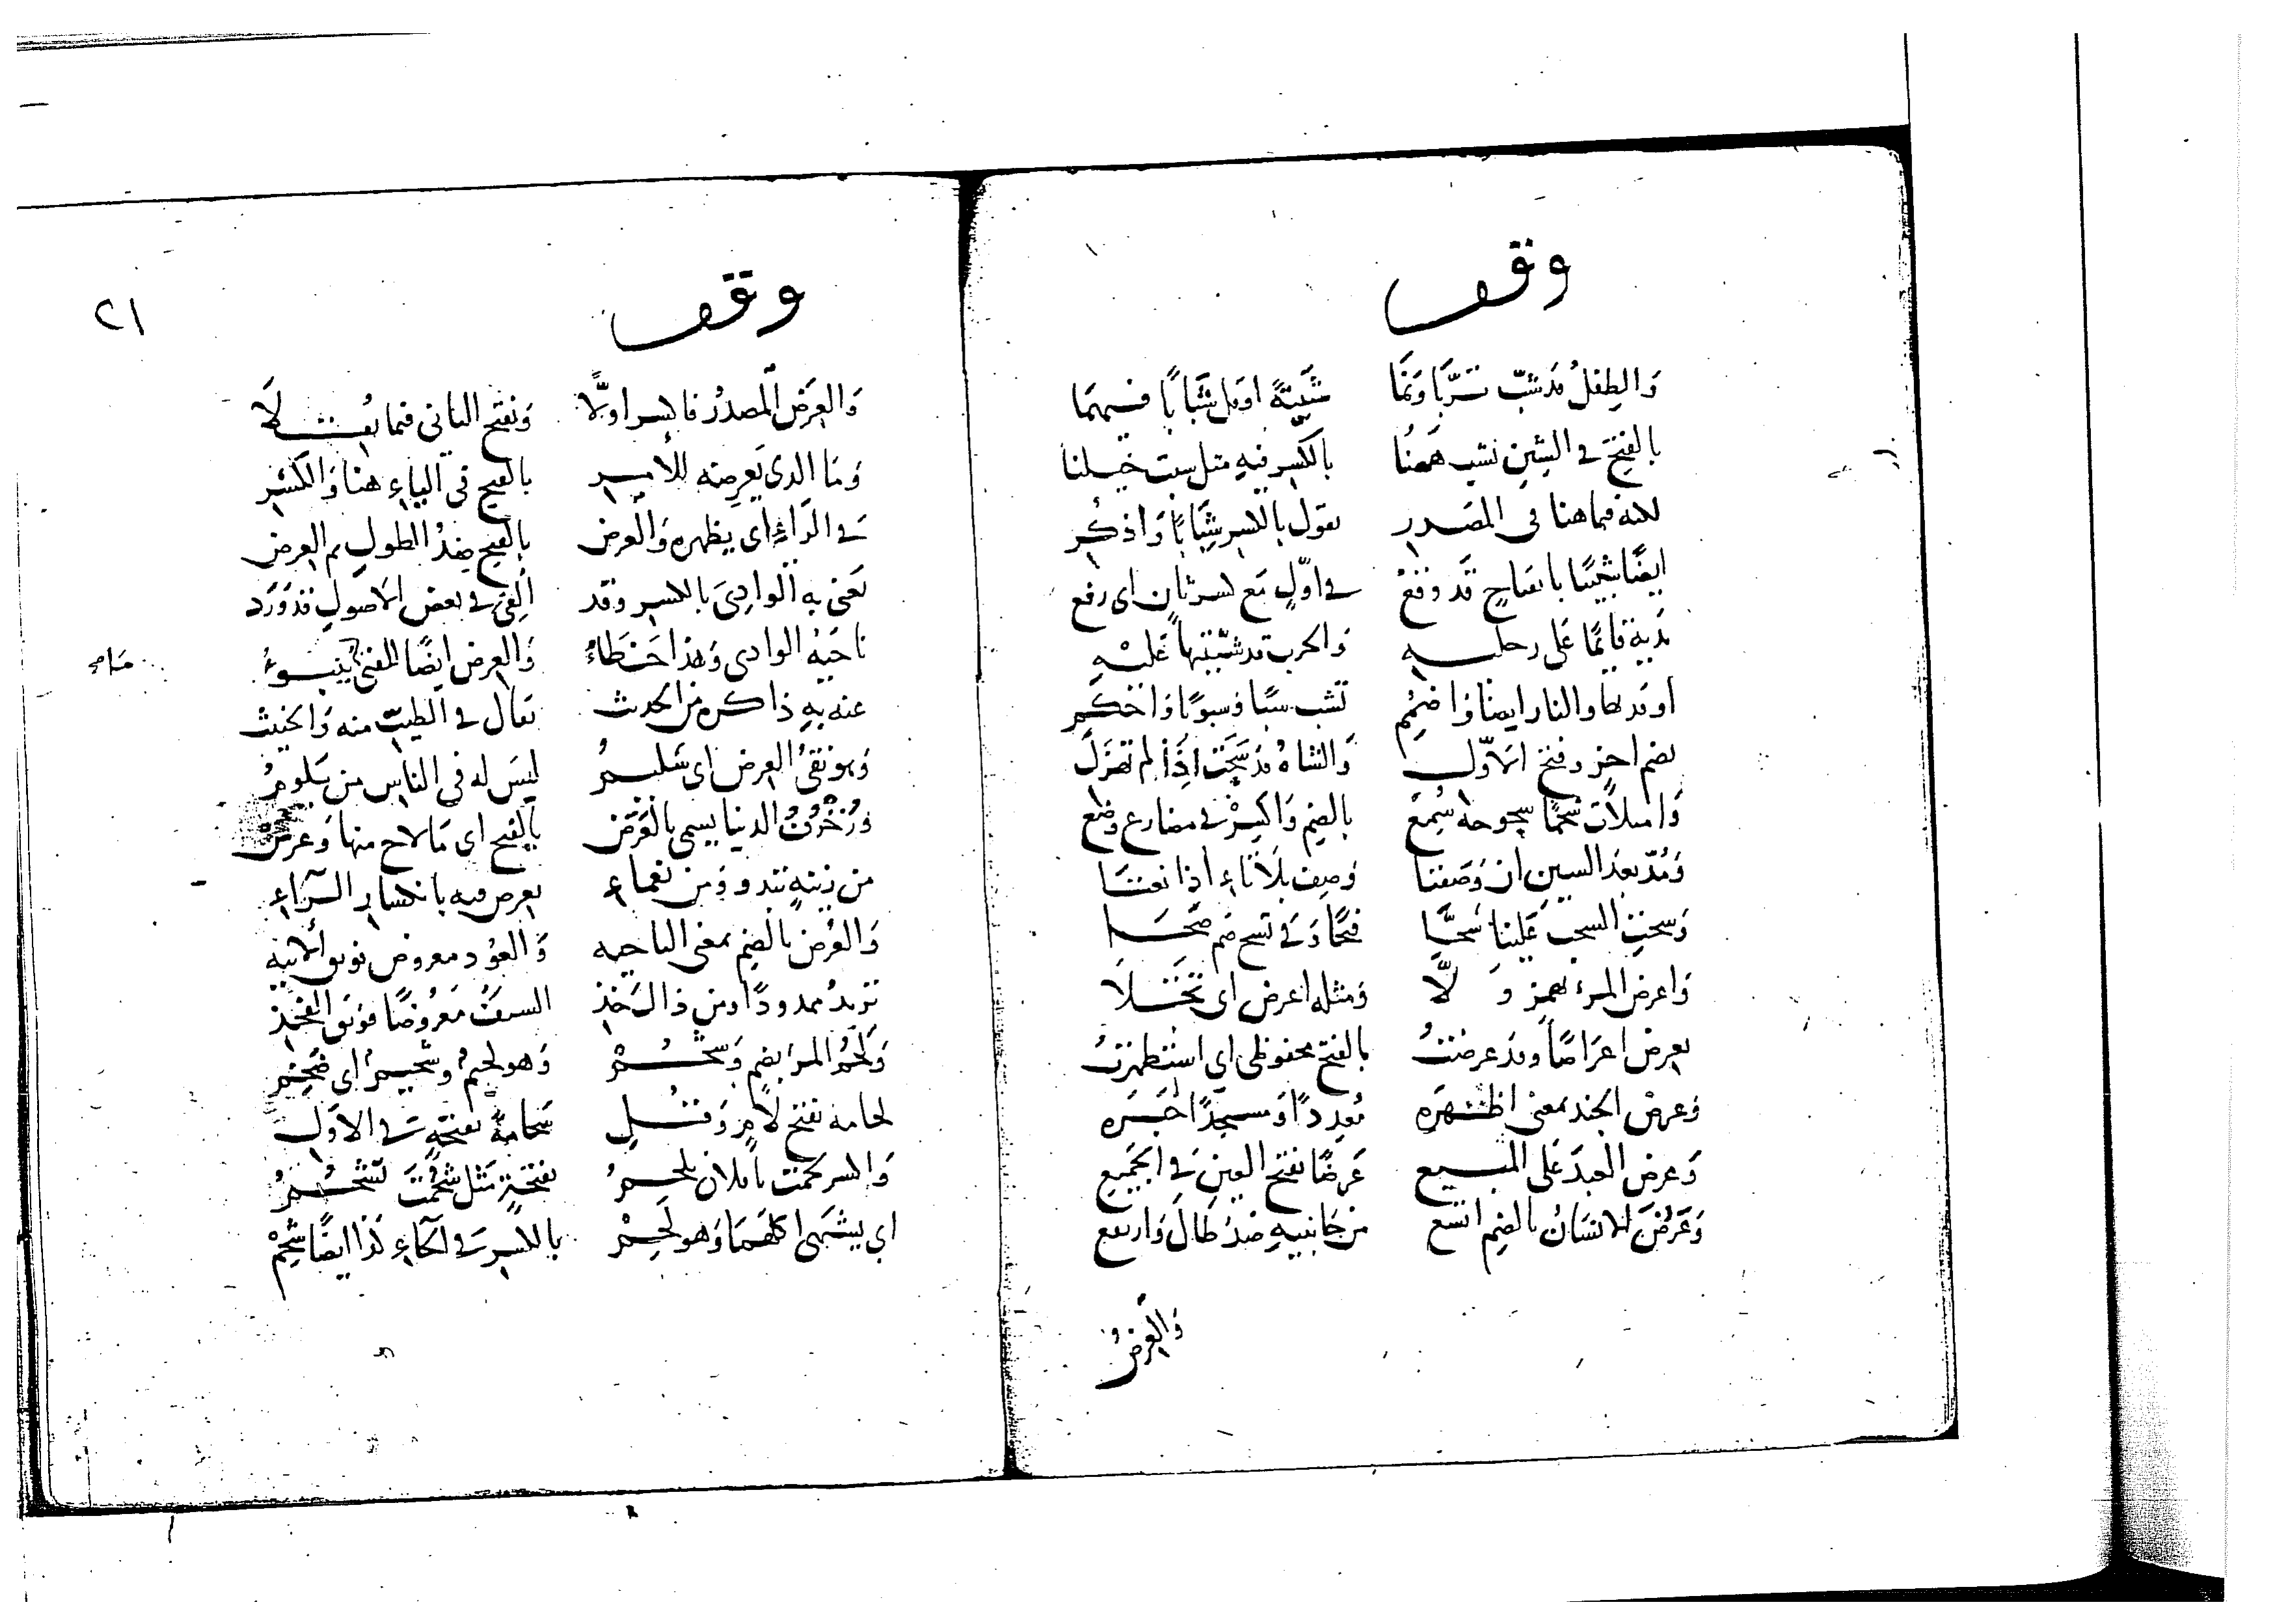 وقف
وَالطِفلُ قد شبّ تَرَبَّا وَنَمَا شَبِيبَةً او قل شَبَابًا فيهما
بالفتح في الشين تشب هَهُنَا بالكسر فيه مثل شبت خيلنا
لكنه فيما هنا في المصدر تقول بالكسر شِبَابًا وَاذكر
ايضًا شبيبًا بانفتاح قد وقع في اوّلٍ مَع كسر ثان اى رفع
يديه قايمًا على رحليه وَالحرب قد شَبَبْتها عليه
اوقدتها والنار ايضا وَاضمم تشب شبًا وَشبوبًا وَاحكم
بضم اخر وفتح الاوّل وَالشاة قد سَحّت اذا لم تهزل
وَامتلأت شحمًا سحوحه سُمِعَ بالضم وَاكسر في مضارع وقع
وَمُدّ بعد السين ان وَصفتا وَصف بلا تاء اذا نعتا
وَسحت السحب عَلينا سَحَّا فتحًا وَفي تسح ضم صَحَّا
وَاعرض المرء بهمز وَلّا وَمثله اعرض اى تخلا
يعرض اعرَاضًا وقد عرضتُ بالفتح محفوظى اي استظهرتُ
وَعرض الجند بمعنى اظهَره
وَعرض العبدَ عَلى المبيع عَرضًا بفتح العين في الجميع
وَعَرُضَ الانسَانُ بالضم اتسع من جَانبيه ضدُ طَالَ وَارتفع
وَالعِرَضُ
وقف
٢١
وَالعِرَض المصدرُ فاكسر اولًا وَتفتح الثانى فيما
وَمَا الذى يَعرِضه للامير بالفتح في الياء هنا وَالكسر
في الراءِ اى يظهره وَالعرض بالفتح ضدُ الطول ثم العرض
يَعنى به الوادِىَ بالكسر وقد اُلفِىَ في بعض الاصول قد وَرَد
ناحيَةُ الوادى وَهذا خَطَاءُ وَالعرض ايضًا
عنه به ذاكره من الحدث يقال في الطيب منه وَالخبث
وَهو نقىُّ العرض اى سَليمُ ليسَ له في الناس من يَلومُ
وَزُخْرُفُ الدنيا يسمى بالعَرَض بالفتح اى مَا لاح منها وَعرض
من زينةٍ تبدو وَمن نعماءِ يعرض فيه بانكسار الرآءِ
وَالعُرض بالضم بمعنى الناحيه وَالعُود معروض فويق الانيه
تريدُ ممدودًا ومن ذاك خذ السيفُ مَعرُوضًا فويق الفخذ
وَلَحُمَ المرءُ بضم وَشَحُمْ وَهو لحيمٌ وشحيمٌ اى ضَخِم
لحامة بفتح لامٍ وَقُلِ شحامةً بفتحةٍ في الاوَل
وَاكسر لحمت يا فلان تلحمُ بفتحةٍ مثل شَحِمْتَ تَشحَمُ
اي يشتهى اكلهمَا وَهو لَحِمْ بالكسر في الحاءِ كذا ايضًا شَحِمْ